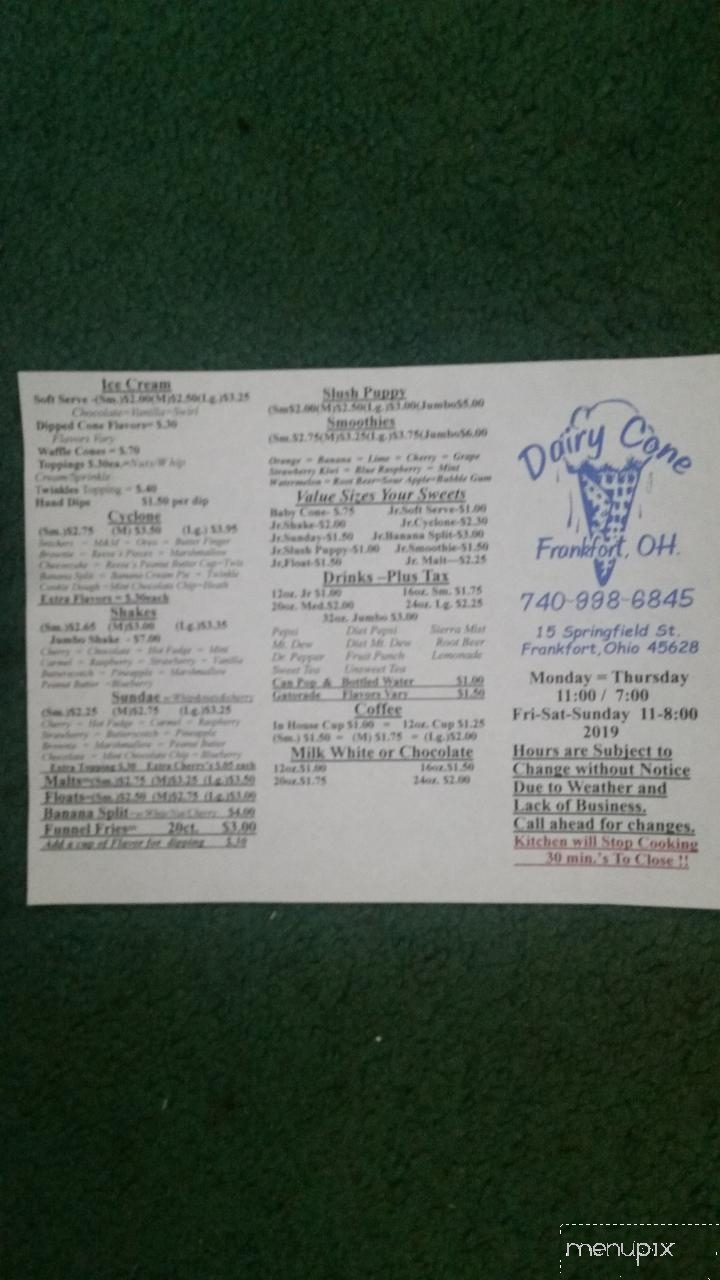 Ice Cream
Soft Serve -(Sm.)$2.00(M)$2.50(Lg.)$3.25
Chocolate=Vanilla=Swirl
Dipped Cone Flavors= $.30
Flavors Vary
Waffle Cones = $.70
Toppings $.30ea.=Nuts/Whip
Cream/Sprinkle
Twinkles Topping = $.40
Hand Dips $1.50 per dip
Cyclone
(Sm.)$2.75 (M) $3.50 (Lg.) $3.95
= Oreo = Butter Finger
Brownie = Reese's Pieces = Marshmallow
Cheesecake = Reese's Peanut Butter Cup=Twix
Banana Split = Banana Cream Pie = Twinkie
Cookie Dough =Mint Chocolate Chip=Heath
Extra Flavors = $.30each
Shakes
(Sm.)$2.65 (M)$3.00 (Lg.)$3.35
Jumbo Shake - $7.00
Cherry = Chocolate = Hot Fudge = Mint
Carmel = Raspberry = Strawberry = Vanilla
Butterscotch = Pineapple = Marshmallow
Peanut Butter =Blueberry
Sundae =Whip&nuts&cherry
(Sm.)$2.25 (M)$2.75 (Lg.)$3.25
Cherry = Hot Fudge = Carmel = Raspberry
Strawberry = Butterscotch = Pineapple
Brownie = Marshmallow = Peanut Butter
Chocolate = Mint Chocolate Chip = Blueberry
Extra Topping $.30 Extra Cherry's $.05 each
Malts=(Sm.)$2.75 (M)$3.25 (Lg.)$3.50
Floats=(Sm.)$2.50 (M)$2.75 (Lg.)$3.00
Banana Split $4.00
Funnel Fries= 20ct. $3.00
Add a cup of Flavor for dipping $.30
Slush Puppy
(Sm$2.00(M)$2.50(Lg.)$3.00(Jumbo$5.00
Smoothies
(Sm.$2.75(M)$3.25(Lg.)$3.75(Jumbo$6.00
Orange = Banana = Lime = Cherry = Grape
Strawberry Kiwi = Blue Raspberry = Mint
Watermelon = Root Beer=Sour Apple=Bubble Gum
Value Sizes Your Sweets
Baby Cone- $.75 Jr.Soft Serve-$1.00
Jr.Shake-$2.00 Jr.Cyclone-$2.30
Jr.Sunday-$1.50 Jr.Banana Split-$3.00
Jr.Slush Puppy-$1.00 Jr.Smoothie-$1.50
Jr.Float-$1.50 Jr. Malt—$2.25
Drinks –Plus Tax
12oz. Jr $1.00 16oz. Sm. $1.75
20oz. Med.$2.00 24oz. Lg. $2.25
32oz. Jumbo $3.00
Pepsi Diet Pepsi Sierra Mist
Mt. Dew Diet Mt. Dew Root Beer
Dr. Pepper Fruit Punch Lemonade
Sweet Tea Unsweet Tea
Can Pop & Bottled Water $1.00
Gatorade Flavors Vary $1.50
Coffee
In House Cup $1.00 = 12oz. Cup $1.25
(Sm.) $1.50 = (M) $1.75 = (Lg.)$2.00
Milk White or Chocolate
12oz.$1.00 16oz.$1.50
20oz.$1.75 24oz. $2.00
Dairy Cone
Frankfort, OH.
740-998-6845
15 Springfield St.
Frankfort,Ohio 45628
Monday = Thursday
11:00 / 7:00
Fri-Sat-Sunday 11-8:00
2019
Hours are Subject to
Change without Notice
Due to Weather and
Lack of Business.
Call ahead for changes.
Kitchen will Stop Cooking
30 min.'s To Close !!
menupix